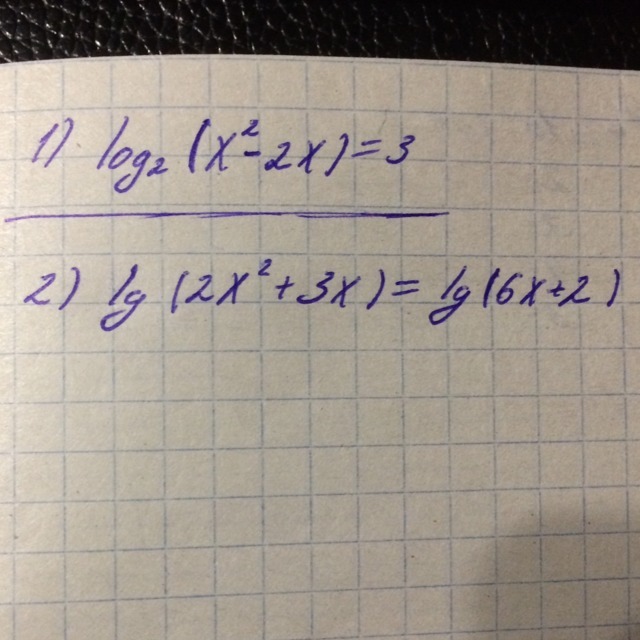 1) log₂ (x² - 2x) = 3
2) lg (2x² + 3x) = lg (6x + 2)